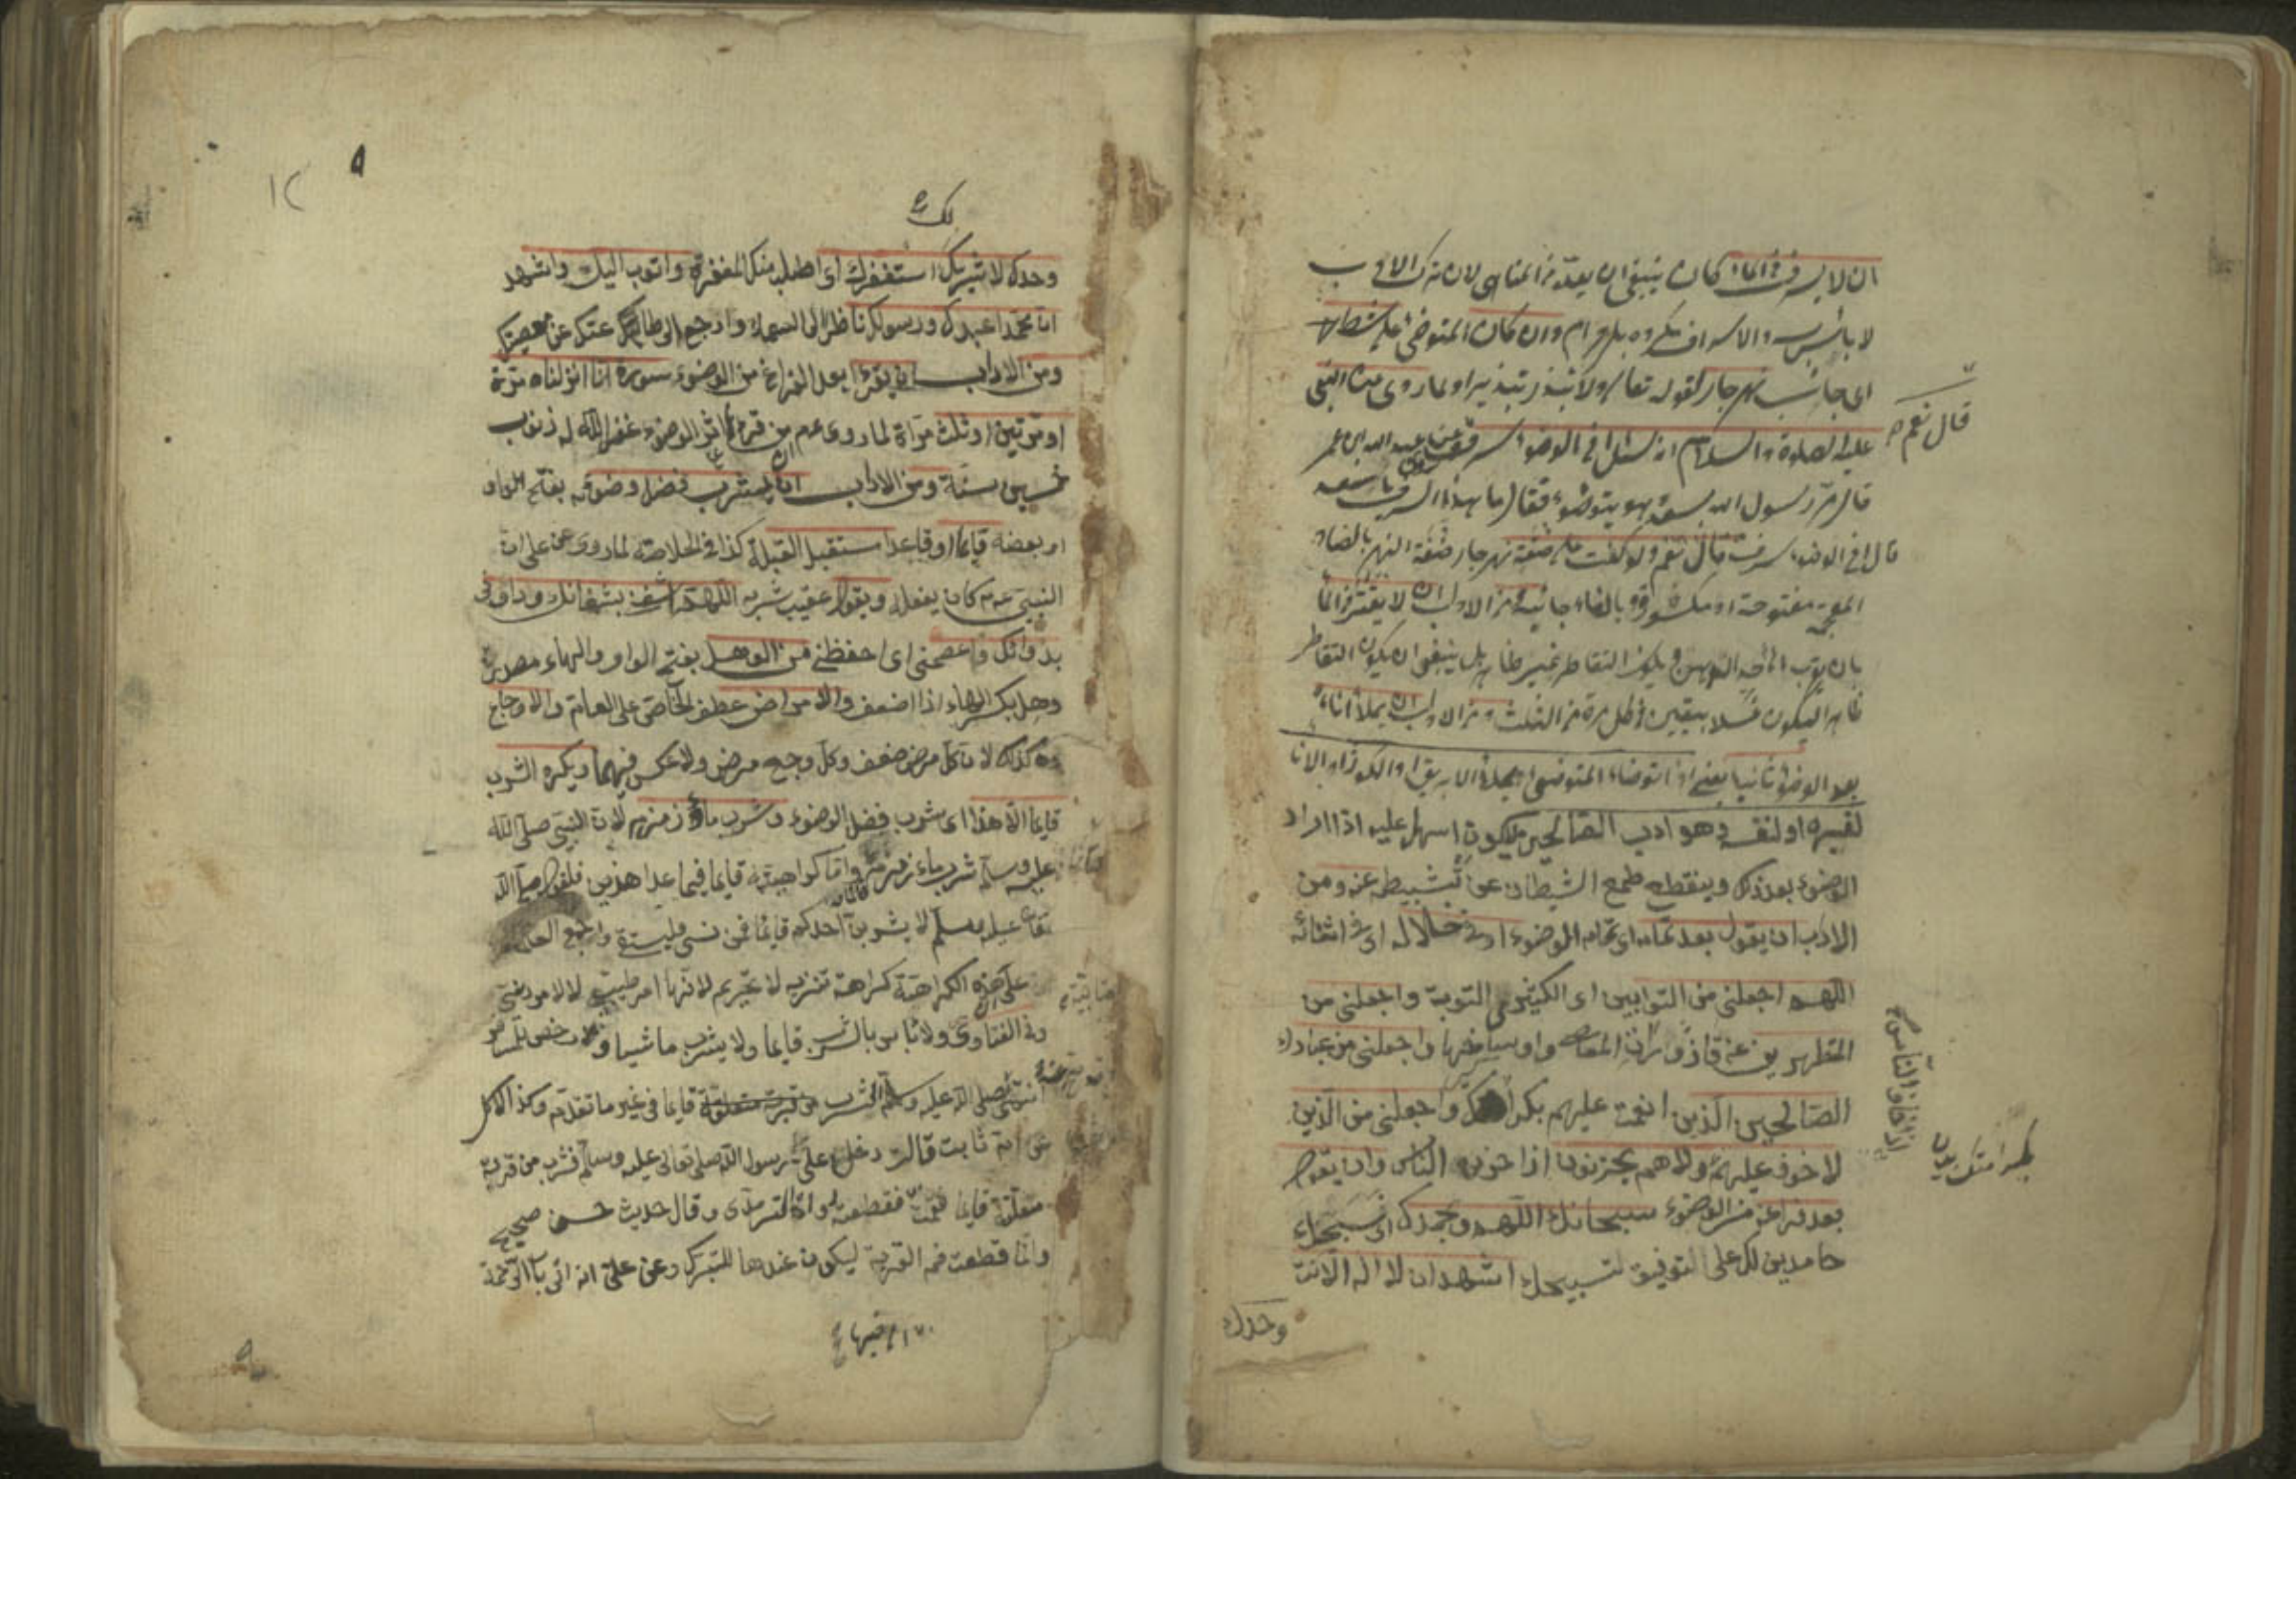 ان لا يسرف في الماء كان ينبغي ان يعده من المناهي لان ترك الادب
لا باس به والاسراف مكروه بل حرام وان كان المتوضئ على شط
اى جانب نهر جار لقوله تعالى ولا تبذر تبذيرا ولما روى عن النبي
عليه الصلوة والسلام انه سئل افي الوضوء سرف عن عبد الله بن عمر
قال نعم
قال مر رسول الله بسعد وهو يتوضوء فقال ما هذا السرف يا سعد
قال افي الوضوء سرف قال نعم ولو كنت على ضفة نهر جار ضفة النهر بالضاد
المعجمة مفتوحة او مكسورة وبالفاء جانبه ومن الاداب ان لا يقتر في الماء
بان يقرب الى حد الدهن ويكون التقاطر غير ظاهر بل ينبغي ان يكون التقاطر
ظاهرا ليكون غسلا بيقين في كل مرة من الثلث ومن الاداب ان يملأ اناءه
بعد الوضوء ثانيا يعني اذا توضاء المتوضئ يملأ الابريق او الكوز او الاناء
لغيره او لنفسه وهو ادب الصالحين ليكون اسهل عليه اذا اراد
الوضوء بعد ذلك وينقطع طمع الشيطان عن تثبيطه عنه ومن
الادب ان يقول بعد تمامه اى تمام الوضوء او في خلاله اى في اثنائه
اللهم اجعلني من التوابين اى الكثيرى التوبة واجعلني من
المتطهرين عن قاذورات المعاصى واوساخها واجعلني من عبادك
الصالحين الذين انعمت عليهم بكرامتك واجعلني من الذين
لا خوف عليهم ولا هم يحزنون اذا حزن الناس وان يقول
اذا خاف الناس
بعد فراغه من الوضوء سبحانك اللهم وبحمدك اى نسبحك
حامدين لك على التوفيق لتسبيحك اشهد ان لا اله الا انت
وحدك
١٢
لك
وحدك لا شريك استغفرك اى اطلب منك المغفرة واتوب اليك واشهد
ان محمدا عبدك ورسولك ناظرا الى السماء وارجع الى طاعتك عن معصيتك
ومن الاداب ان يقرء بعد الفراغ من الوضوء سورة انا انزلناه مرة
او مرتين او ثلث مرات لما روى عم من قرء في اثر الوضوء غفر الله له ذنوب
خمسين سنة ومن الاداب ان يشرب فضل وضوئه بفتح الواو
او بعضه قايما او قاعدا مستقبل القبلة كذا في الخلاصة لما روى عن على ان
النبي عم كان يفعله ويقول عقيب شربه اللهم اشفني بشفائك وداوني
بدوائك واعصمني اى احفظني من الوهل بفتح الواو والهاء مصدر
وهل بكسر الهاء اذا ضعف والامراض عطف الخاص على العام والاوجاع
كذلك لان كل مرض ضعف وكل وجع مرض ولا عكس فيهما ويكره الشرب
قايما الا هذا اى شرب فضل الوضوء وشرب ماء زمزم لان النبي صلى الله
عليه وسلم شرب ماء زمزم قايما واما كراهيته قايما فيما عدا هذين فلقوله صلى الله
تعالى عليه وسلم لا يشربن احدكم قايما فمن نسي فليستق واجمع العلماء
على ان هذه الكراهة كراهة تنزيه لا تحريم لانها لامر طبي لا لامر ديني
وفي الفتاوى ولا باس بالشرب قايما ولا يشرب ماشيا ورخص للمسافر
صلى الله عليه وسلم الشرب من قربة معلقة قايما في غير ما تقدم وكذا الاكل
ثابت قالت دخل على رسول الله صلى تعالى عليه وسلم فشرب من قربة
معلقة قايما فقمت فقطعته رواه الترمذى وقال حديث حسن صحيح
وانما قطعت فم القربة ليكون عندها للتبرك وعن على انه اتى باب الرحبة